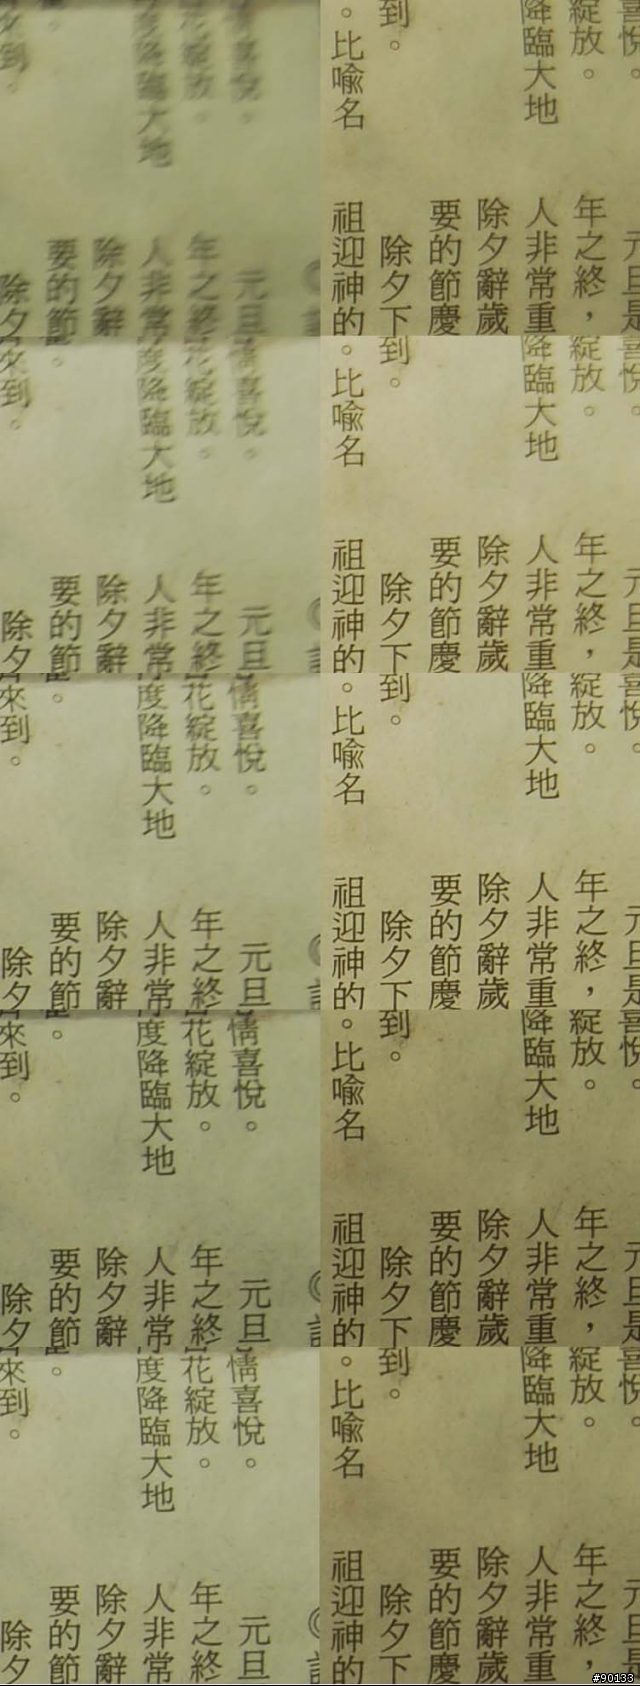 情喜悅。
花綻放。
度降臨大地
。
來到。
元旦
年之終
人非常
除夕辭
要的節
除夕
喜悅。
綻放。
降臨大地
到。
。比喻名
元旦是
年之終，
人非常重
除夕辭歲
要的節慶
除夕下
祖迎神的
情喜悅。
花綻放。
度降臨大地
。
來到。
元旦
年之終
人非常
除夕辭
要的節
除夕
喜悅。
綻放。
降臨大地
到。
。比喻名
元旦是
年之終，
人非常重
除夕辭歲
要的節慶
除夕下
祖迎神的
情喜悅。
花綻放。
度降臨大地
。
來到。
元旦
年之終
人非常
除夕辭
要的節
除夕
喜悅。
綻放。
降臨大地
到。
。比喻名
元旦是
年之終，
人非常重
除夕辭歲
要的節慶
除夕下
祖迎神的
情喜悅。
花綻放。
度降臨大地
。
來到。
元旦
年之終
人非常
除夕辭
要的節
除夕
喜悅。
綻放。
降臨大地
到。
。比喻名
元旦是
年之終，
人非常重
除夕辭歲
要的節慶
除夕下
祖迎神的
情喜悅。
花綻放。
度降臨大地
。
來到。
元旦
年之終
人非常
除夕辭
要的節
除夕
喜悅。
綻放。
降臨大地
到。
。比喻名
元旦
年之終，
人非常重
除夕辭歲
要的節慶
除夕下
祖迎神的
#90133